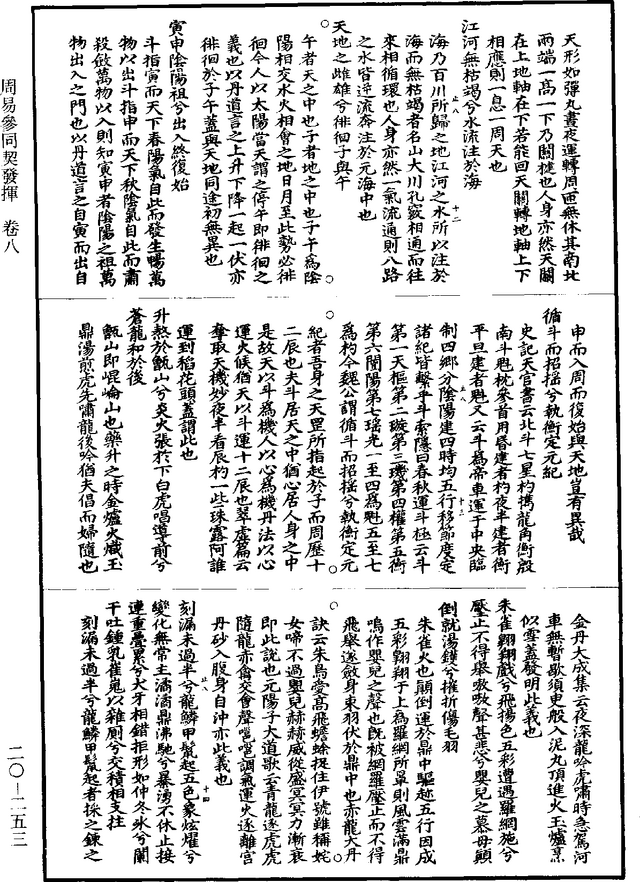 天形如彈丸晝夜運轉周匝無休其南北
兩端一高一下乃關楗也人身亦然天關
在上地軸在下若能回天關轉地軸上下
相應則一息一周天也
江河無枯竭兮水流注於海
止八 十二
海乃百川所歸之地江河之水所以注於
海而無枯竭者名山大川孔竅相通而往
來相循環也人身亦然一氣流通則八路
之水皆逆流奔注於元海中也
天地之雌雄兮徘徊子與午
午者天之中也子者地之中也子午爲陰
陽相交水火相會之地日月至此勢必徘
徊今人以太陽當天謂之停午即徘徊之
義也以丹道言之上升下降一起一伏亦
徘徊於子午蓋與天地同途初無異也
寅申陰陽祖兮出入終復始
斗指寅而天下春陽氣自此而發生暢萬
物以出斗指申而天下秋陰氣自此而肅
殺斂萬物以入則知寅申者陰陽之祖萬
物出入之門也以丹道言之自寅而出自
申而入周而復始與天地豈有異哉
循斗而招搖兮執衡定元紀
史記天官書云北斗七星杓攜龍角衡殷
南斗魁枕參首用昏建者杓夜半建者衡
平旦建者魁又云斗爲帝車運于中央臨
制四鄉分陰陽建四時均五行移節度定
諸紀皆繫乎斗索隱曰春秋運斗極云斗
第一天樞第二璇第三璣第四權第五衡
第六闓陽第七瑤光一至四爲魁五至七
爲杓今魏公謂循斗而招搖兮執衡定元
紀者吾身之天罡所指起於子而周歷十
二辰也夫斗居天之中猶心居人身之中
是故天以斗爲機人以心爲機丹法以心
運火候猶天以斗運十二辰也翠虛篇云
奪取天機妙夜半看辰杓一些珠露阿誰
運到稻花頭蓋謂此也
升熬於甑山兮炎火張於下白虎唱導前兮
蒼龍和於後
甑山即崐崙山也藥升之時金爐火熾玉
鼎湯煎虎先嘯龍後吟猶夫倡而婦隨也
金丹大成集云夜深龍吟虎嘯時急駕河
車無暫歇須臾般入泥丸頂進火玉爐烹
似雪蓋發明此義也
朱雀翱翔戲兮飛揚色五彩遭遇羅網施兮
壓止不得舉嗷嗷聲甚悲兮嬰兒之慕母顛
倒就湯鑊兮摧折傷毛羽
朱雀火也顛倒運於鼎中驅趂五行因成
五彩翱翔于上爲羅網所罩則風雲滿鼎
鳴作嬰兒之聲也旣被網羅壓止而不得
飛舉遂斂身束羽伏於鼎中也赤龍大丹
訣云朱鳥愛高飛蟾蜍捉住伊號雖稱姹
女啼不過嬰兒赫赫威從盛冥冥力漸衰
即此說也元陽子大道歌云青龍逐虎虎
隨龍赤禽交會聲嗈嗈調氣運火逐離宮
丹砂入腹身自沖亦此義也
刻漏未過半兮龍鱗甲鬣起五色象炫燿兮
止八 十四
變化無常主潏潏鼎沸馳兮暴湧不休止接
連重疊累兮犬牙相錯拒形如仲冬氷兮闌
干吐鍾乳崔嵬以雜厠兮交積相支拄
刻漏未過半兮龍鱗甲鬣起者採之鍊之
周易參同契發揮 卷八
二〇—二五三